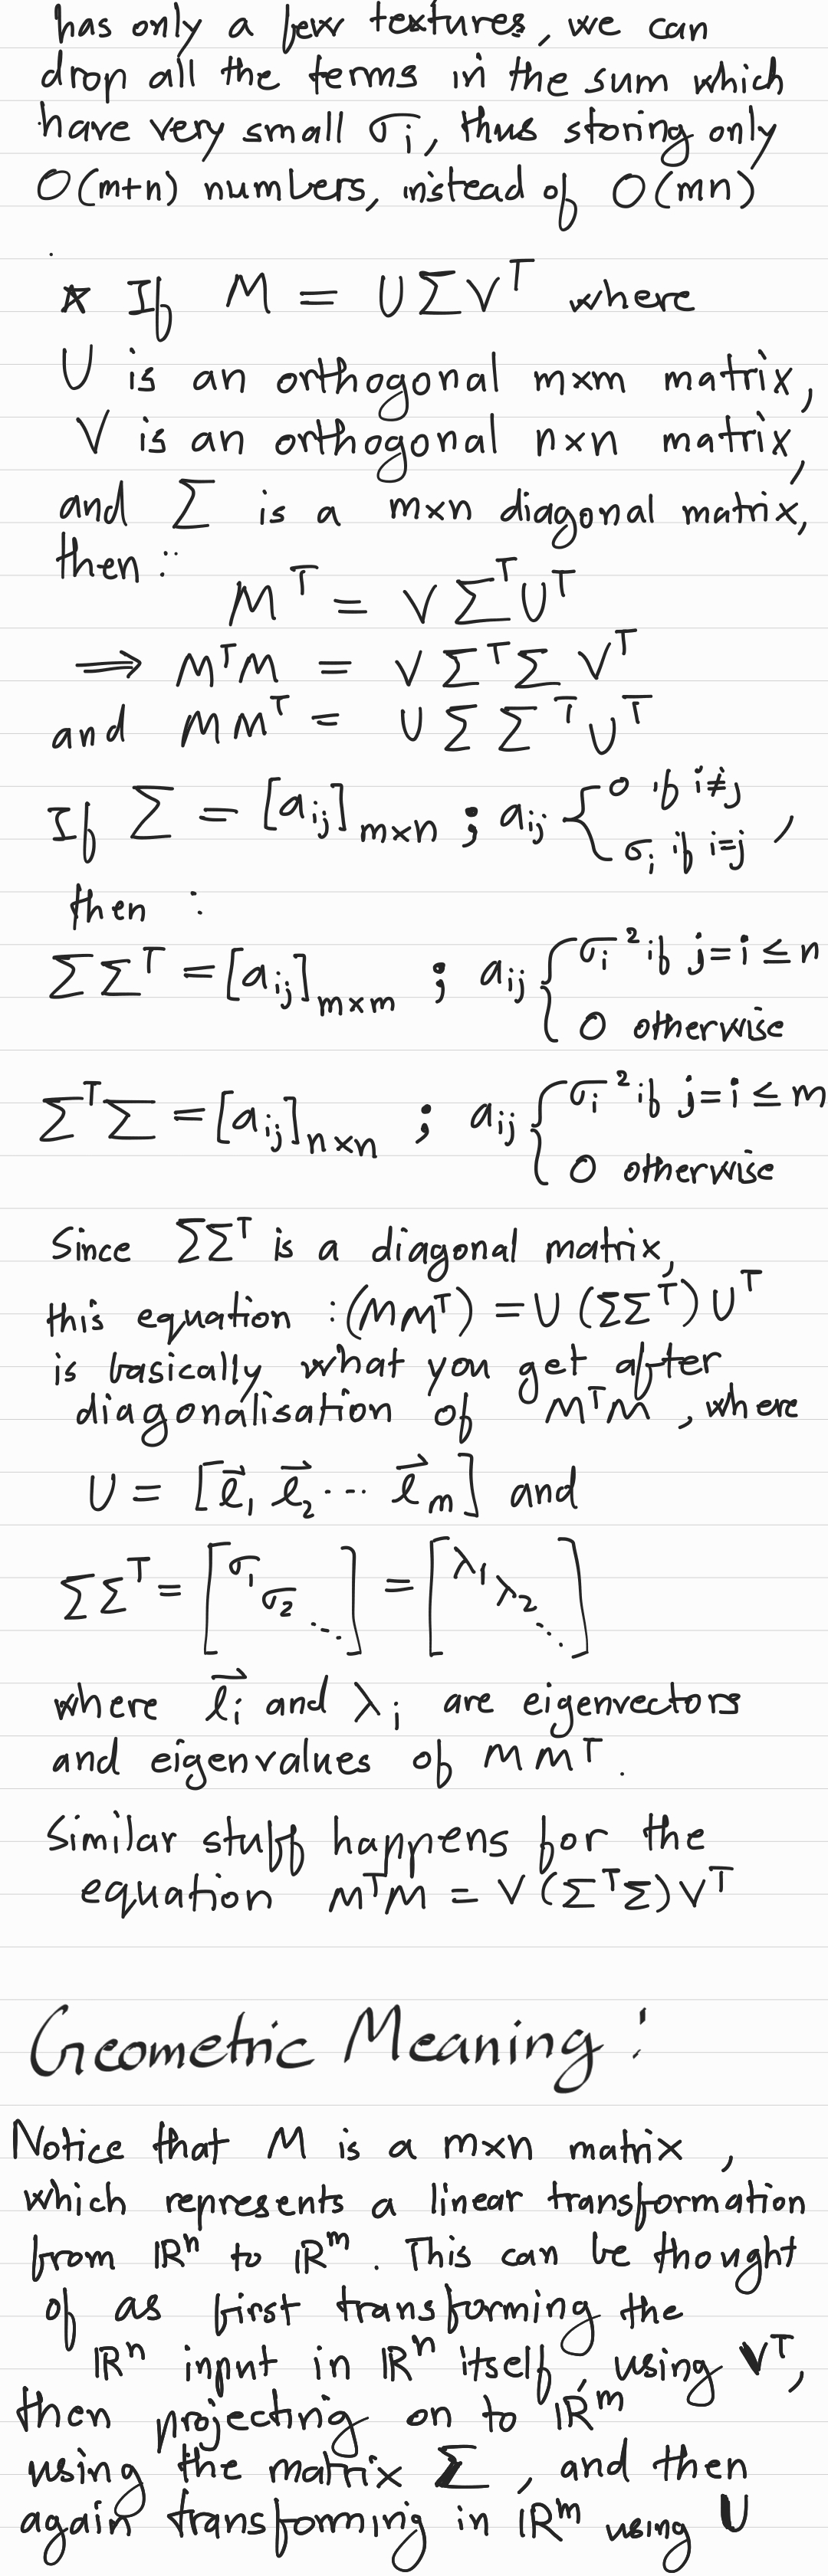 has only a few textures, we can
drop all the terms in the sum which
have very small σᵢ, thus storing only
O(m+n) numbers, instead of O(mn)
* If M = UΣVᵀ where
U is an orthogonal m×m matrix,
V is an orthogonal n×n matrix,
and Σ is a m×n diagonal matrix,
then :
Mᵀ = VΣᵀUᵀ
⟹ MᵀM = VΣᵀΣVᵀ
and MMᵀ = UΣΣᵀUᵀ
If Σ = [aᵢⱼ]ₘₓₙ ; aᵢⱼ { 0 if i≠j
σᵢ if i=j ,
then :
ΣΣᵀ = [aᵢⱼ]ₘₓₘ ; aᵢⱼ { σᵢ² if j=i ≤ n
0 otherwise
ΣᵀΣ = [aᵢⱼ]ₙₓₙ ; aᵢⱼ { σᵢ² if j=i ≤ m
0 otherwise
Since ΣΣᵀ is a diagonal matrix,
this equation : (MMᵀ) = U(ΣΣᵀ)Uᵀ
is basically what you get after
diagonalisation of MᵀM, where
U = [l⃗₁ l⃗₂ ... l⃗ₘ] and
ΣΣᵀ = [σ₁ σ₂ ⋱] = [λ₁ λ₂ ⋱]
where l⃗ᵢ and λᵢ are eigenvectors
and eigenvalues of MMᵀ.
Similar stuff happens for the
equation MᵀM = V(ΣᵀΣ)Vᵀ
Geometric Meaning :
Notice that M is a m×n matrix,
which represents a linear transformation
from ℝⁿ to ℝᵐ. This can be thought
of as first transforming the
ℝⁿ input in ℝⁿ itself, using Vᵀ,
then projecting on to ℝᵐ
using the matrix Σ, and then
again transforming in ℝᵐ using U